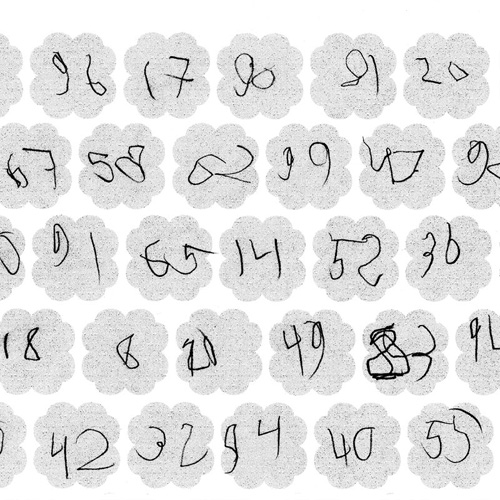 96 17 90 91 20
67 58 62 99 47
91 65 14 52 36
18 8 49
42 32 94 40 55